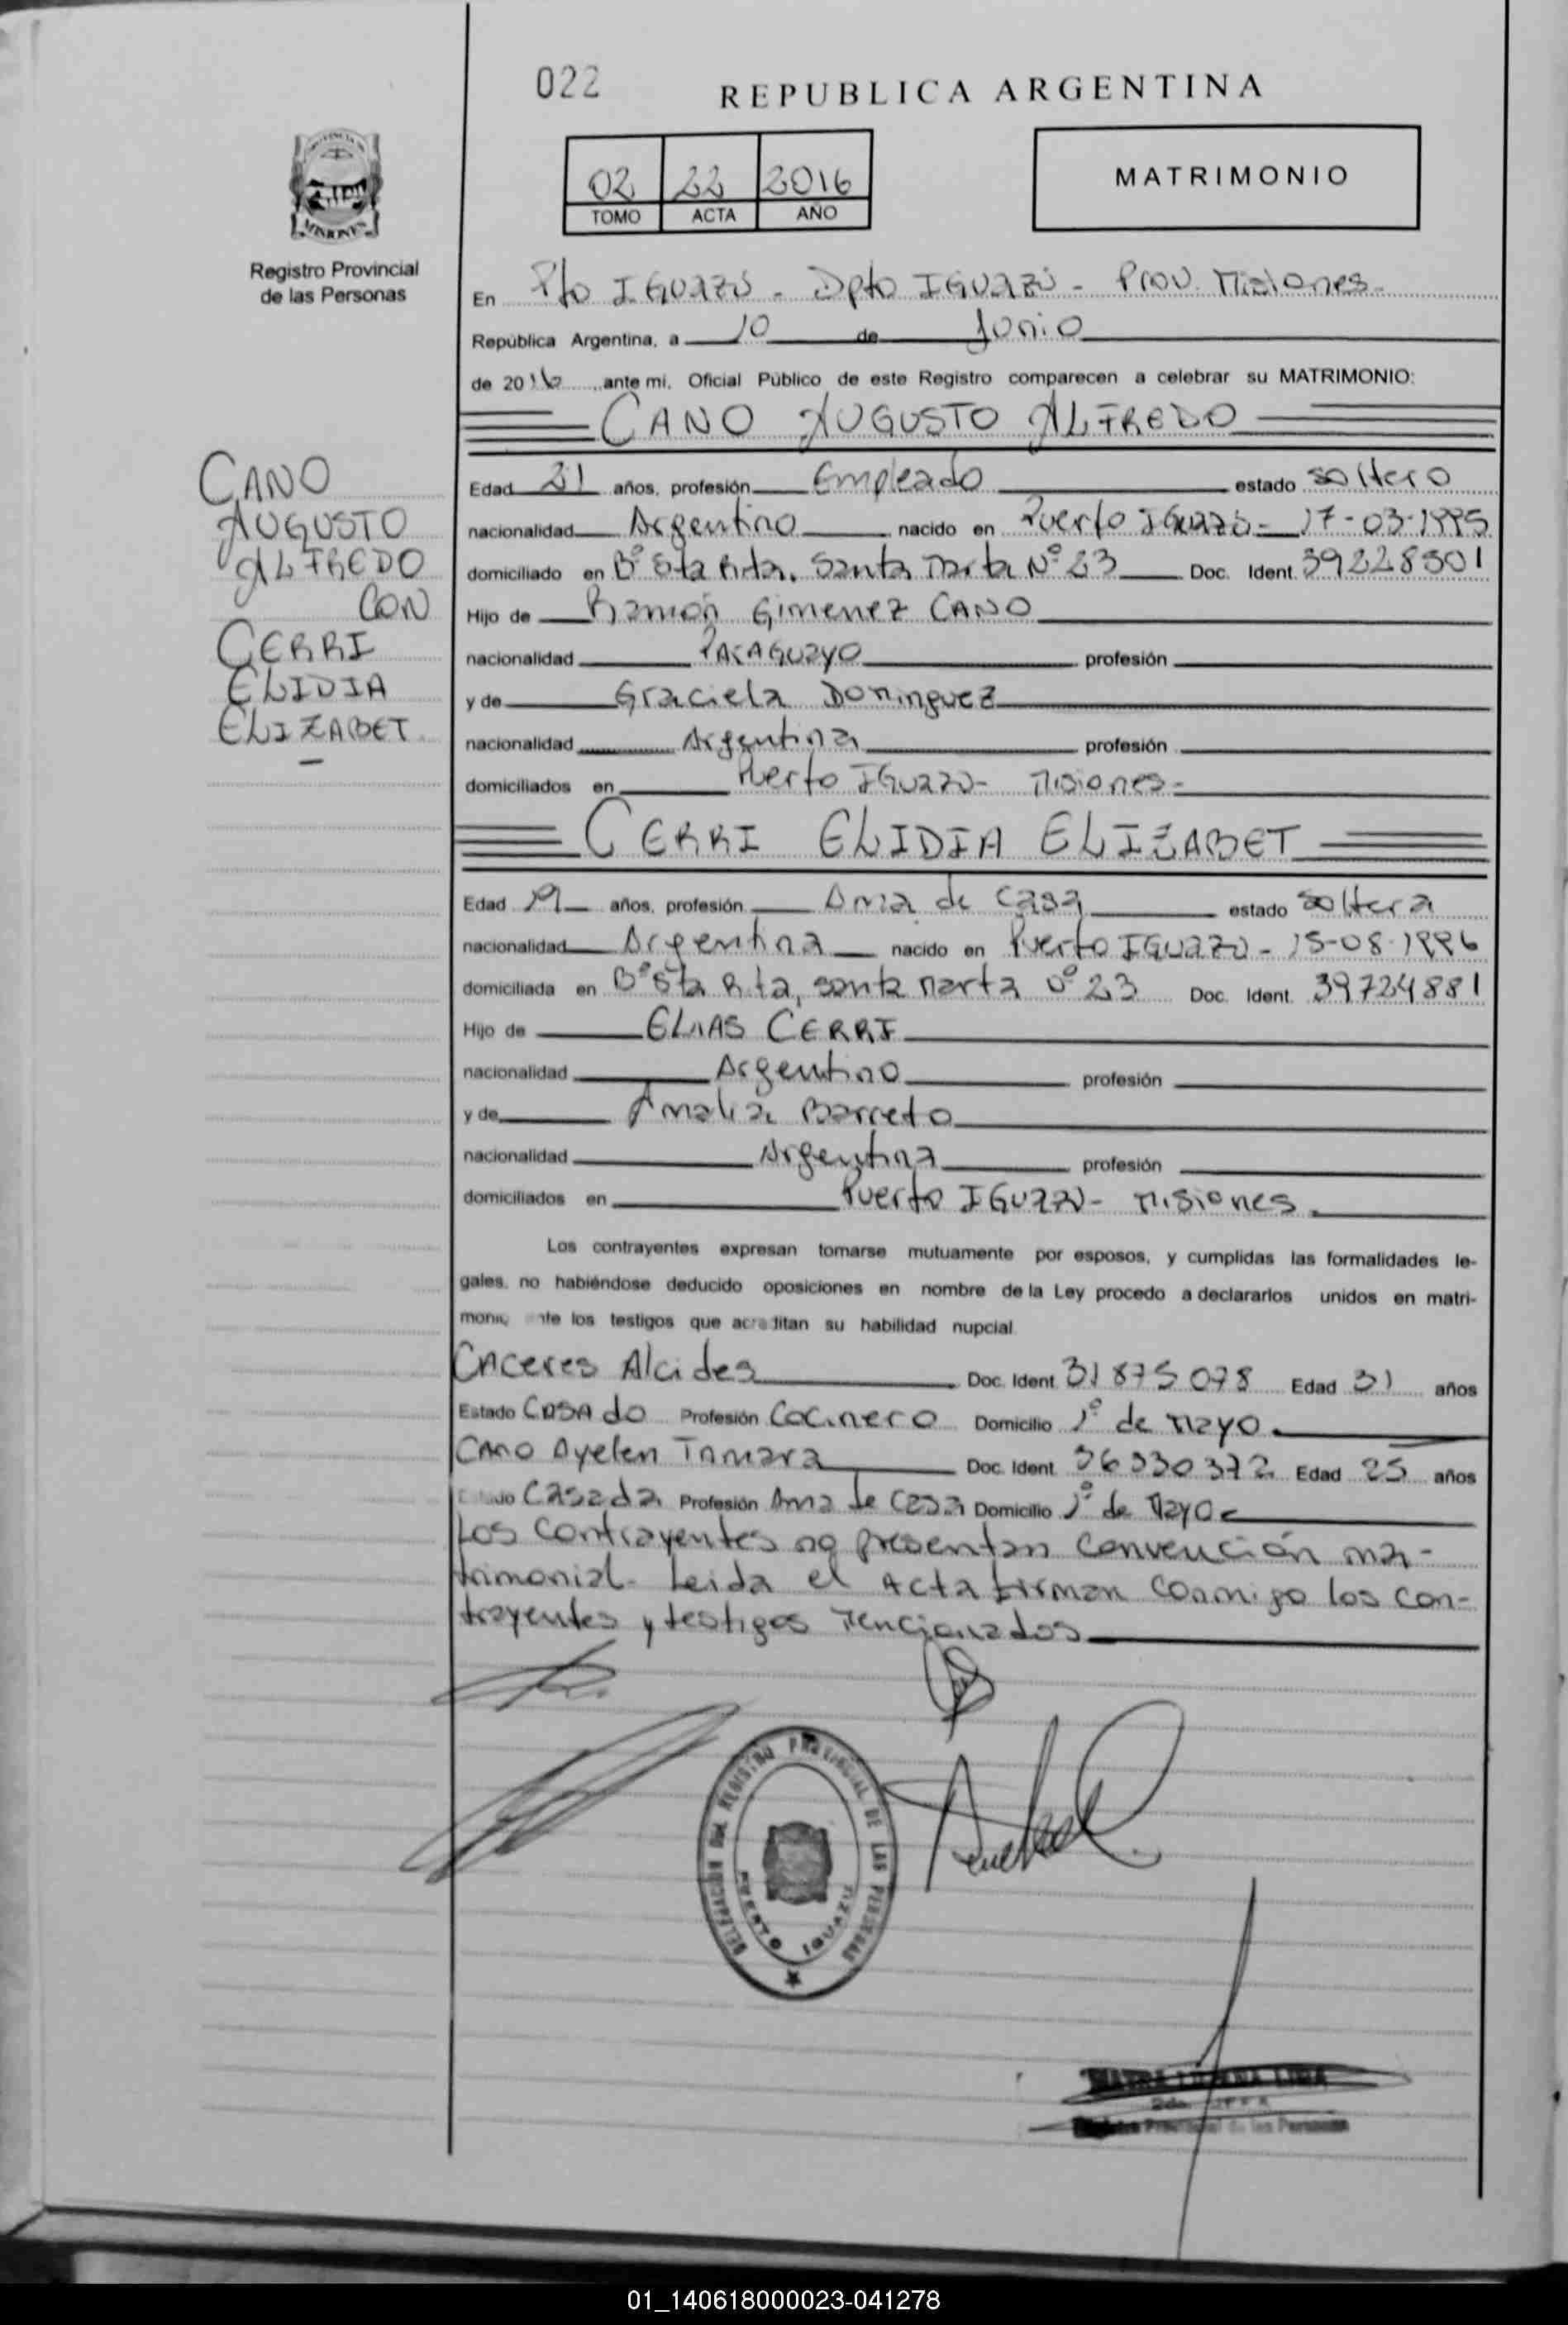 022
REPUBLICA ARGENTINA
02 22 2016
TOMO ACTA AÑO
MATRIMONIO
MISIONES
Registro Provincial
de las Personas
En Pto IGUAZÚ - Dpto IGUAZÚ - Prov. Misiones -
República Argentina, a 10 de Junio
de 2016 ,ante mi, Oficial Público de este Registro comparecen a celebrar su MATRIMONIO:
CANO AUGUSTO ALFREDO
CANO
AUGUSTO
ALFREDO
CON
CERRI
ELIDIA
ELIZABET
Edad 21 años, profesión Empleado estado soltero
nacionalidad Argentino nacido en Puerto IGUAZÚ - 17-03-1995
domiciliado en Bº Sta Rita, Santa Marta Nº 23 Doc. Ident. 39228501
Hijo de Ramón Gimenez CANO
nacionalidad PARAGUAYO profesión
y de Graciela Dominguez
nacionalidad Argentina profesión
domiciliados en Puerto IGUAZU - Misiones -
CERRI ELIDIA ELIZABET
Edad 19 años, profesión Ama de casa estado soltera
nacionalidad Argentina nacido en Puerto IGUAZU - 15-08-1996
domiciliada en Bº Sta Rita, santa Marta Nº 23 Doc. Ident. 39724881
Hijo de ELIAS CERRI
nacionalidad Argentino profesión
y de Amalia Barreto
nacionalidad Argentina profesión
domiciliados en Puerto IGUAZU - Misiones.
Los contrayentes expresan tomarse mutuamente por esposos, y cumplidas las formalidades le-
gales, no habiéndose deducido oposiciones en nombre de la Ley procedo a declararlos unidos en matri-
monio los testigos que acreditan su habilidad nupcial
CACERES Alcides Doc. Ident 31875078 Edad 31 años
Estado CASAdo Profesión Cocinero Domicilio 1º de Mayo.
CANO Ayelen TAMARA Doc. Ident 36330372 Edad 25 años
Estado CASADA Profesión Ama de casa Domicilio 1º de Mayo -
Los contrayentes no presentan convención ma-
trimonial. Leida el Acta firman conmigo los con-
trayentes y testigos mencionados
DELEGACION DEL REGISTRO PROVINCIAL DE LAS PERSONAS
PUERTO IGUAZU
LIMA
Provincial de las Personas
01_140618000023-041278